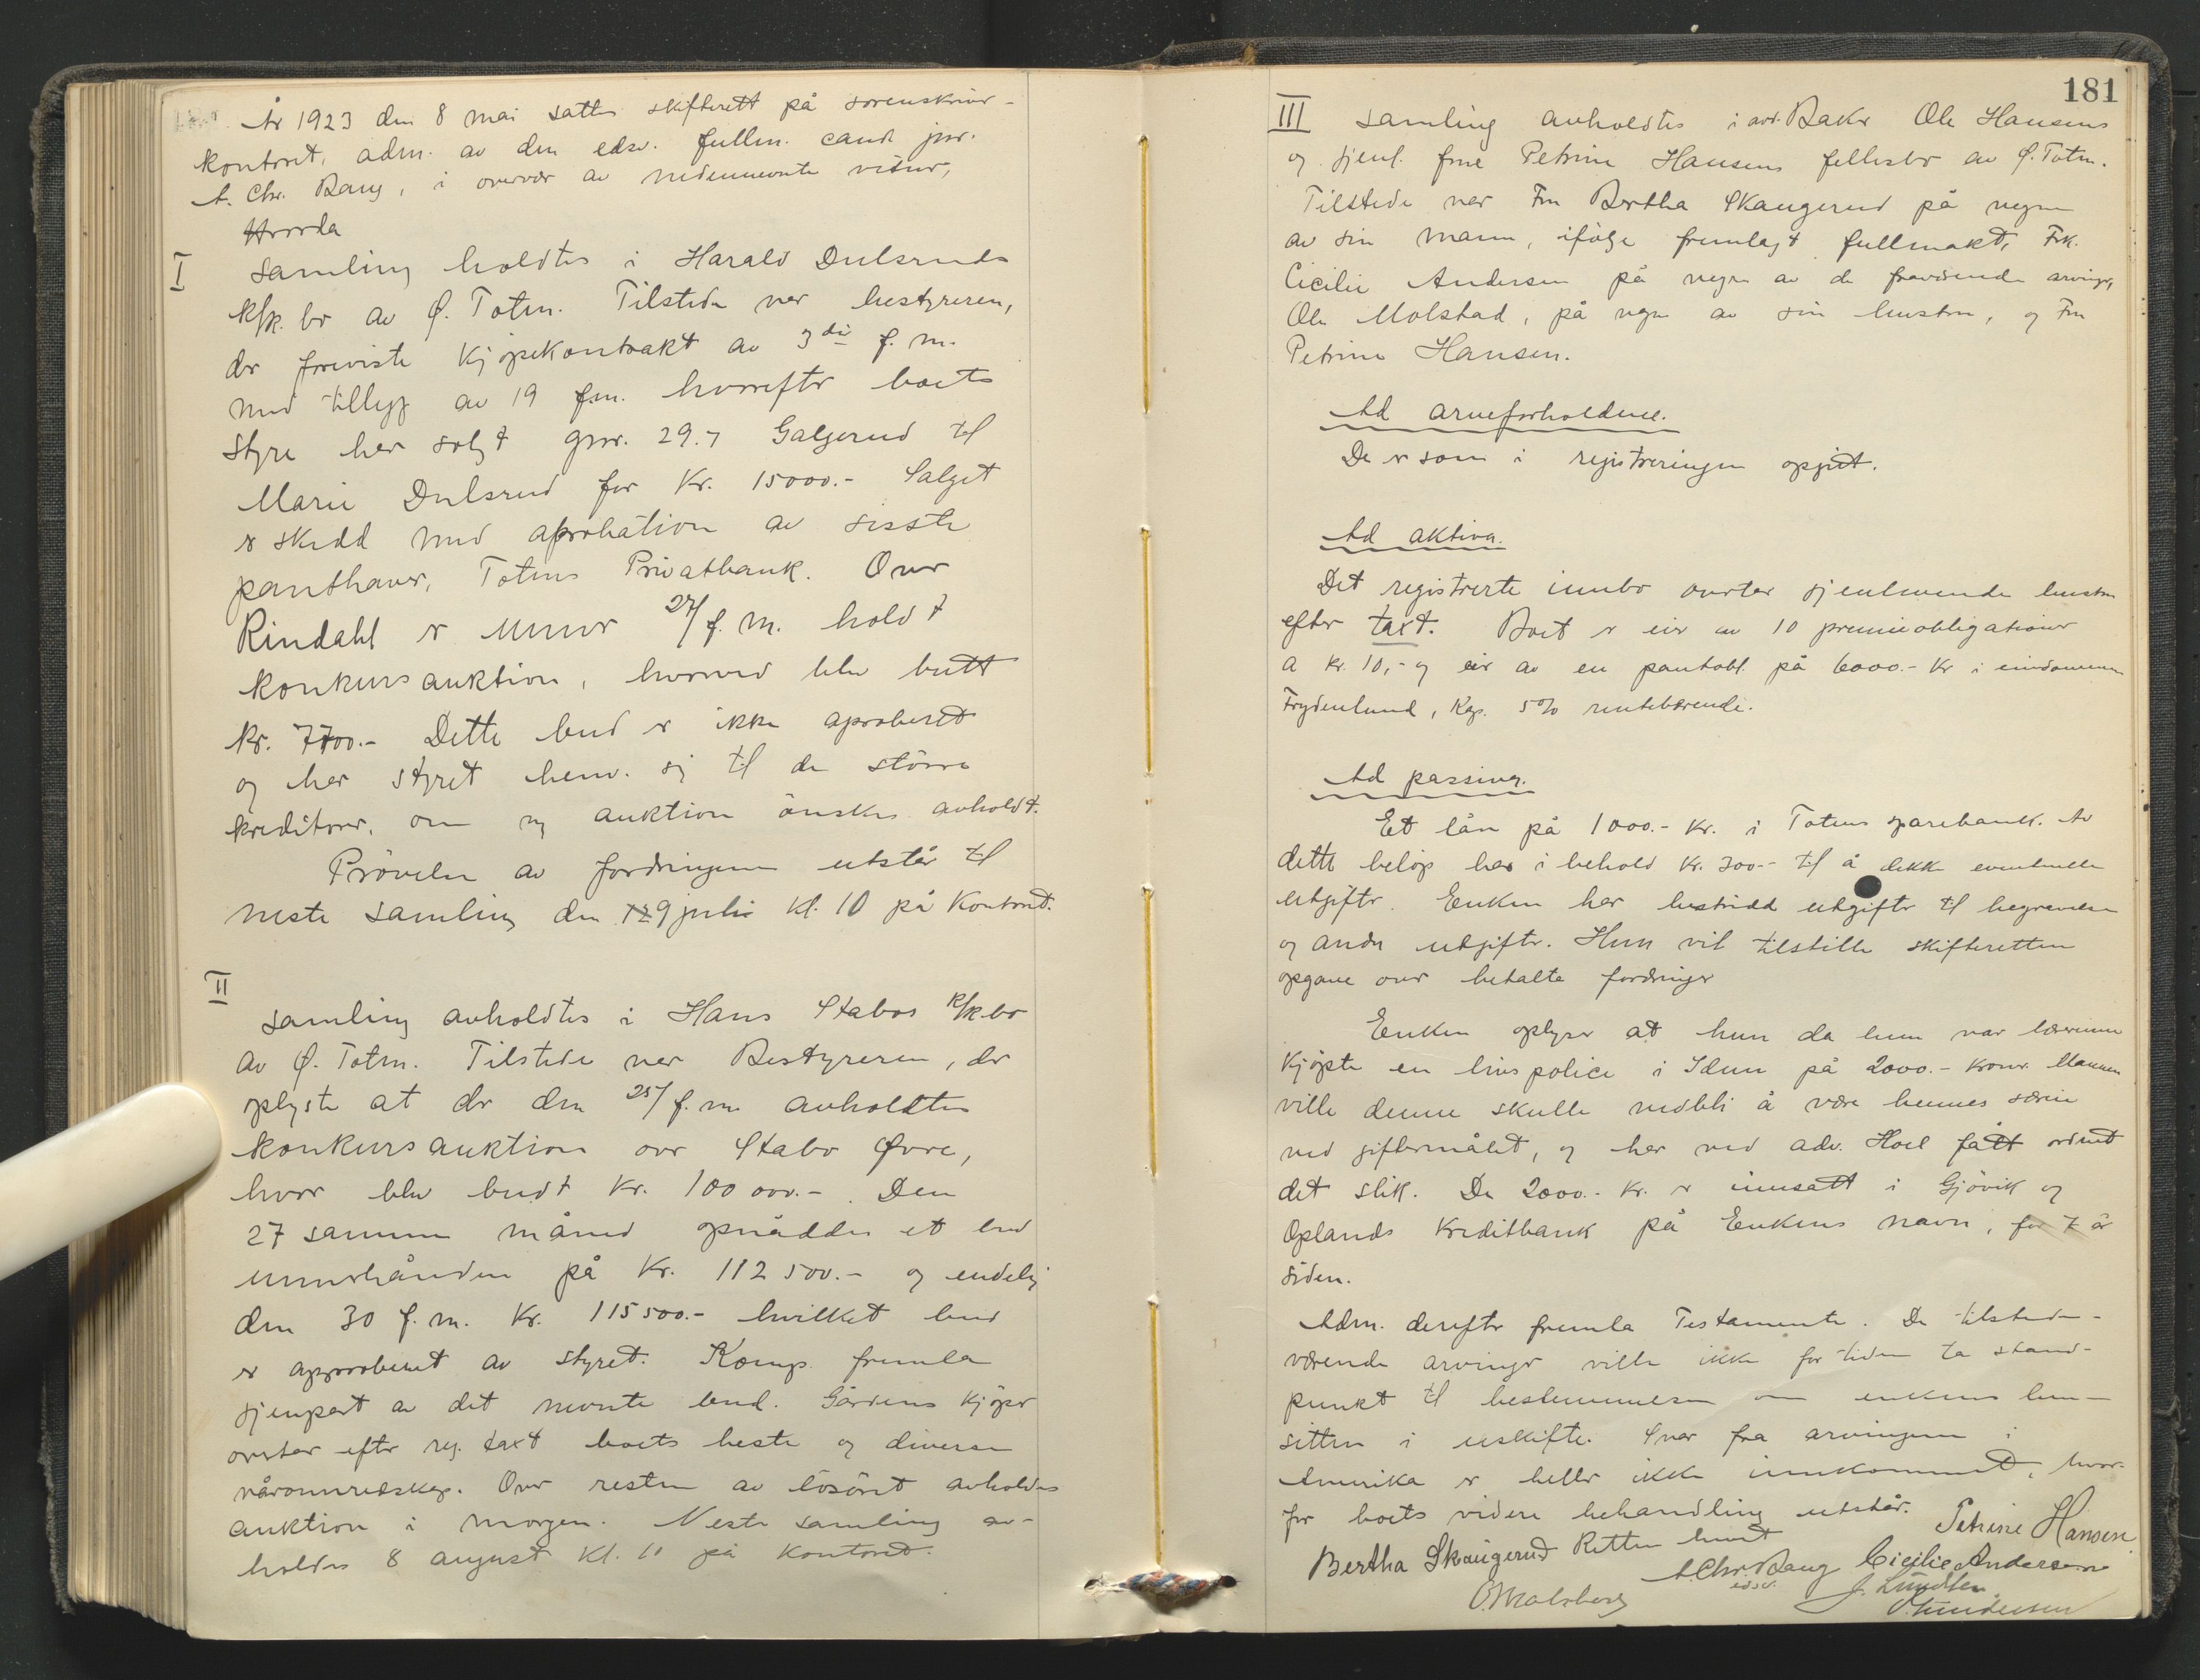 År 1923 den 8 mai sattes skifterett på sorenskriver-
kontoret, adm. av den edsv. fullm. cand. jur.
A. Chr. Bang, i overvær av nedennevnte vitner,
Hvorda
I Samling holdtes i Harald Dulsruds
k/k. bo av Ø. Toten. Tilstede var bestyreren,
der foreviste kjøpekontrakt av 3die f. m.
med tillegg av 19 f.m. hvorefter boets
styre har solgt gnr. 29.7 Galgerud til
Marie Dulsrud for kr. 15000.- Salget
er skedd med aprobation av sisste
panthaver, Totens Privatbank. Over
Rindahl er unner 27/ f. m. holdt
konkursauktion, hvorved blev budt
kr. 7700.- Dette bud er ikke aproberet
og har styret henv. sig til de større
kreditorer, om ny auktion ønskes avholdt.
Prøvelse av fordringene utstår til
neste samling den 9 juli kl. 10 på kontoret.
II
Samling avholdtes i Hans Stabos k/k.bo
av Ø. Toten. Tilstede var Bestyreren, der
oplyste at der den 25/ f. m. avholdtes
konkursauktion over Stabo Øvre,
hvor blev budt kr. 100 000.-. Den
27 samme måned opnåddes et bud
unnerhånden på kr. 112 500.- og endelig
den 30 f. m. kr. 115 500.- hvilket bud
er approberet av styret. Komp. fremla
gjenpart av det nevnte bud. Gårdens kjøper
overtar efter reg. taxt boets heste og diverse
våronnredskap. Over resten av løsøret avholdes
auktion i morgen. Neste samling av-
holdes 8 august kl. 11 på kontoret.
181
III Samling avholdtes i avd. Baker Ole Hansens
og gjenl. frue Petrine Hansens fellesbo av Ø. Toten.
Tilstede var Fru Bertha Skaugerud på vegne
av sin mann, ifølge fremlagt fullmakt, Frk.
Cicilie Andersen på vegne av de fraværende arvinger,
Ole Molstad, på vegne av sin hustru, og Fru
Petrine Hansen.
Ad arveforholdene.
De er som i registreringen opgitt.
Ad aktiva.
Det registrerte innbo overtar gjenlevende hustru
efter taxt. Boet er eier av 10 premieobligationer
a kr. 10,- og eier av en pantobl. på 6000.- kr i eiendommen
Frydenlund, Kap. 5% rentebærende.
Ad passiva.
Et lån på 1000.- kr. i Totens sparebank. Av
dette beløp has i behold kr. 300.- til å dekke eventuelle
utgifter. Enken har bestridd utgifter til begravelse
og andre utgifter. Hun vil tilstille skifteretten
opgave over betalte fordringer
Enken oplyser at hun da hun var lærerinne
kjøpte en livspolice i Idun på 2000.- kroner. Mannen
ville denne skulle vedbli å være hennes særeie
ved giftermålet, og har ved adv. Hoel fått ordnet
det slik. De 2000.- kr. er innsatt i Gjøvik og
Oplands Kreditbank på Enkens navn, for 7 år
siden.
Adm. derefter fremla Testamente. De tilstede-
værende arvinger ville ikke for tiden ta stand-
punkt til bestemmelsen om enkens hen-
sitten i uskifte. Svar fra arvingene i
Amerika er heller ikke innkommet, hvor-
for boets videre behandling utstår.
Retten hevet
Petrine Hansen
Bertha Skaugerud
A. Chr. Bang
edsv.
Cicilie Andersen